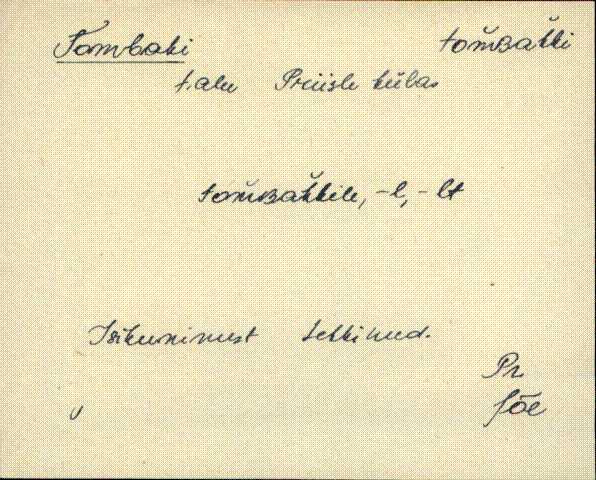 Tambaki tom̌ʙak̆ki
talu Priisle külas
tom̌ʙak̆kile, -l, -lt
Isikunimest tekkinud.
Pr
Jõe